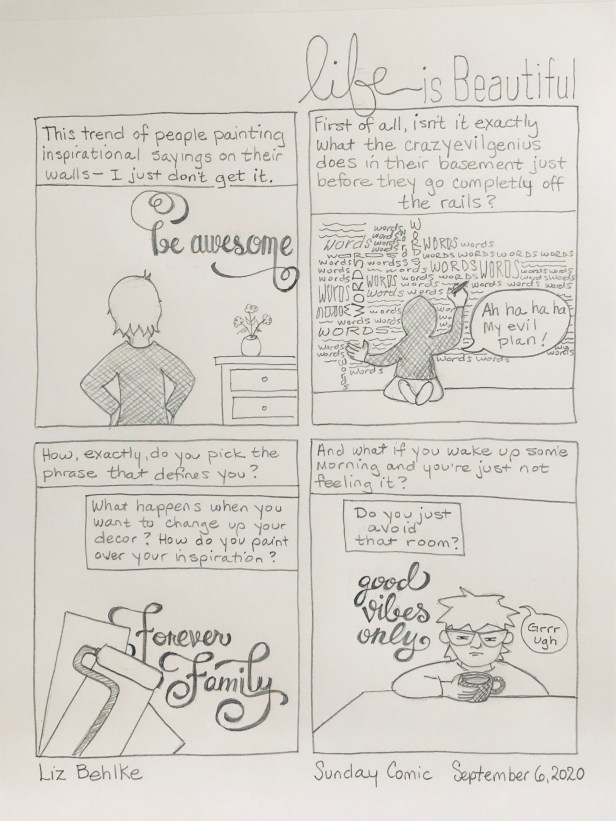 life is Beautiful
This trend of people painting
inspirational sayings on their
walls - I just don't get it.
be awesome
First of all, isn't it exactly
what the crazyevilgenius
does in their basement just
before they go completly off
the rails?
words
words
words
WORDS
WORDS words
words WORDS WORDS WORDS
words
words
words WORDS WORDS
words
WORDS
words
WORDS
words words
WORDS
words
words
words words
words
Ah ha ha ha
My evil
plan!
How, exactly, do you pick the
phrase that defines you?
What happens when you
want to change up your
decor? How do you paint
over your inspiration?
Forever
Family
And what if you wake up some
Morning and you're just not
feeling it?
Do you just
avoid
that room?
good
vibes
only
Grrr
ugh
Liz Behlke
Sunday Comic September 6, 2020